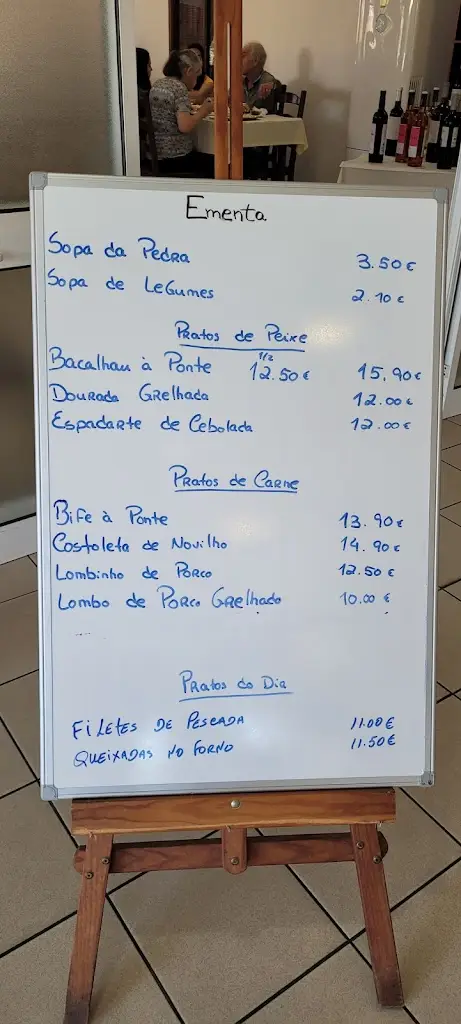 Ementa
Sopa da Pedra 3.50€
Sopa de Legumes 2.10€
Pratos de Peixe
Bacalhau à Ponte 1/2 12.50€ 15,90€
Dourada Grelhada 12.00€
Espadarte de Cebolada 12.00€
Pratos de Carne
Bife à Ponte 13.90€
Costoleta de Novilho 14.90€
Lombinho de Porco 12.50€
Lombo de Porco Grelhado 10.00€
Pratos do Dia
FILETES DE PESCADA 11.00€
QUEIXADAS NO FORNO 11.50€